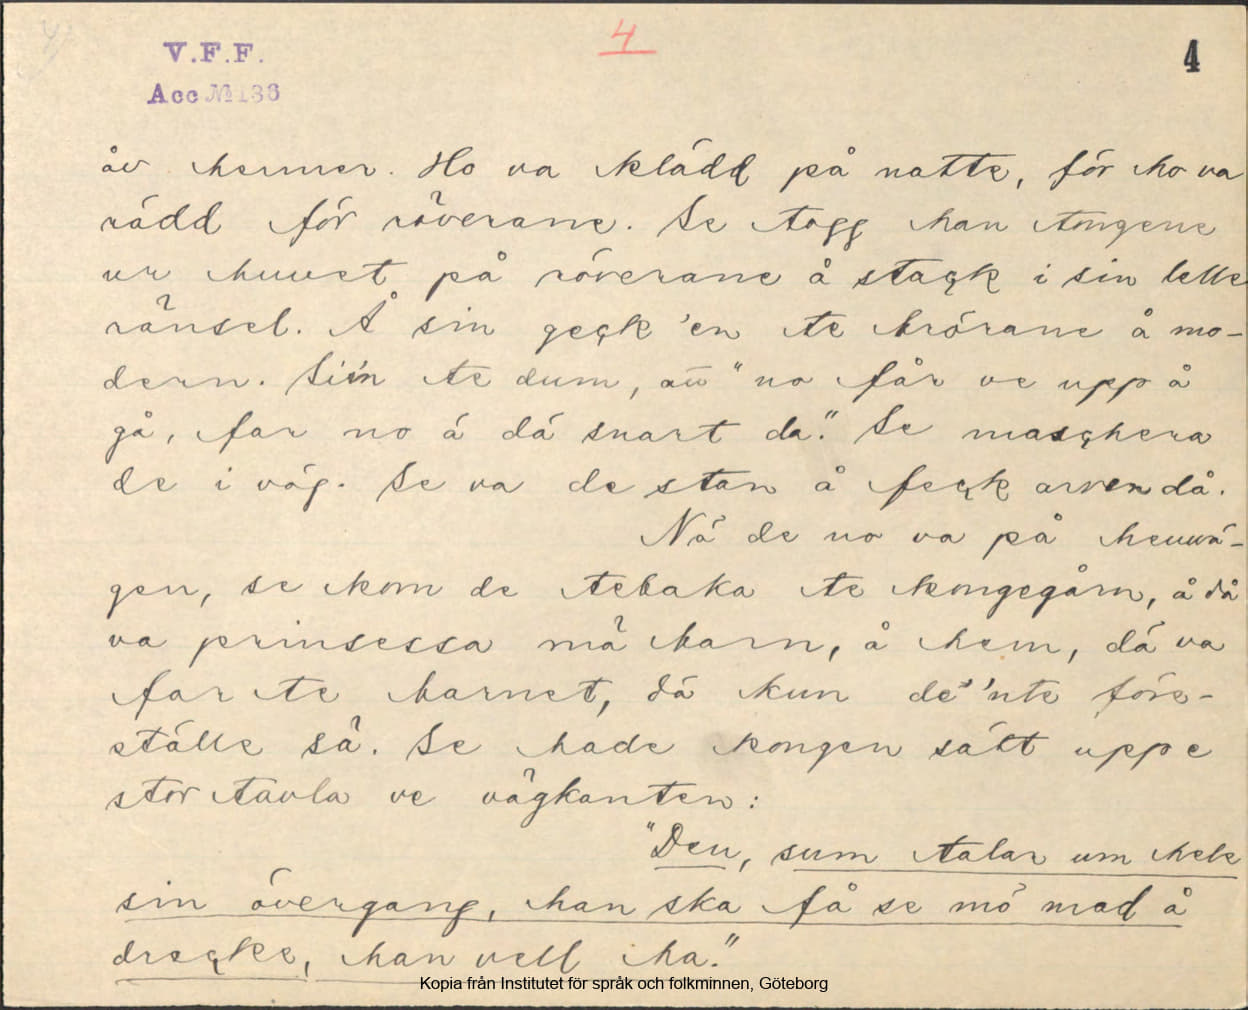 4
V.F.F.
Acc № 136
4
åv henner. Ho va klädd på natte, för ho va
rädd för röverane. Se togg han tongene
ur huvet på röverane å staçk i sin lelle
ränsel. Å sin geçk 'en te brörane å mo-
dern. Si'n te dum, att "no får ve upp å
gå, far no ä dä snart da." Se masçhera
de i väg. Se va de stan å feçk arven då.
Nä de no va på hemvä-
gen, se kom de tebaka te kongegårn, å då
va prinsessa mä barn, å hem, dä va
far te barnet, dä kun de' 'nte före-
ställe sä. Se hade kongen sätt upp e
stor tavla ve vägkanten:
"Den, sum talar um hele
sin övergang, han ska få se mö mad å
dreçke, han vell ha."
Kopia från Institutet för språk och folkminnen, Göteborg